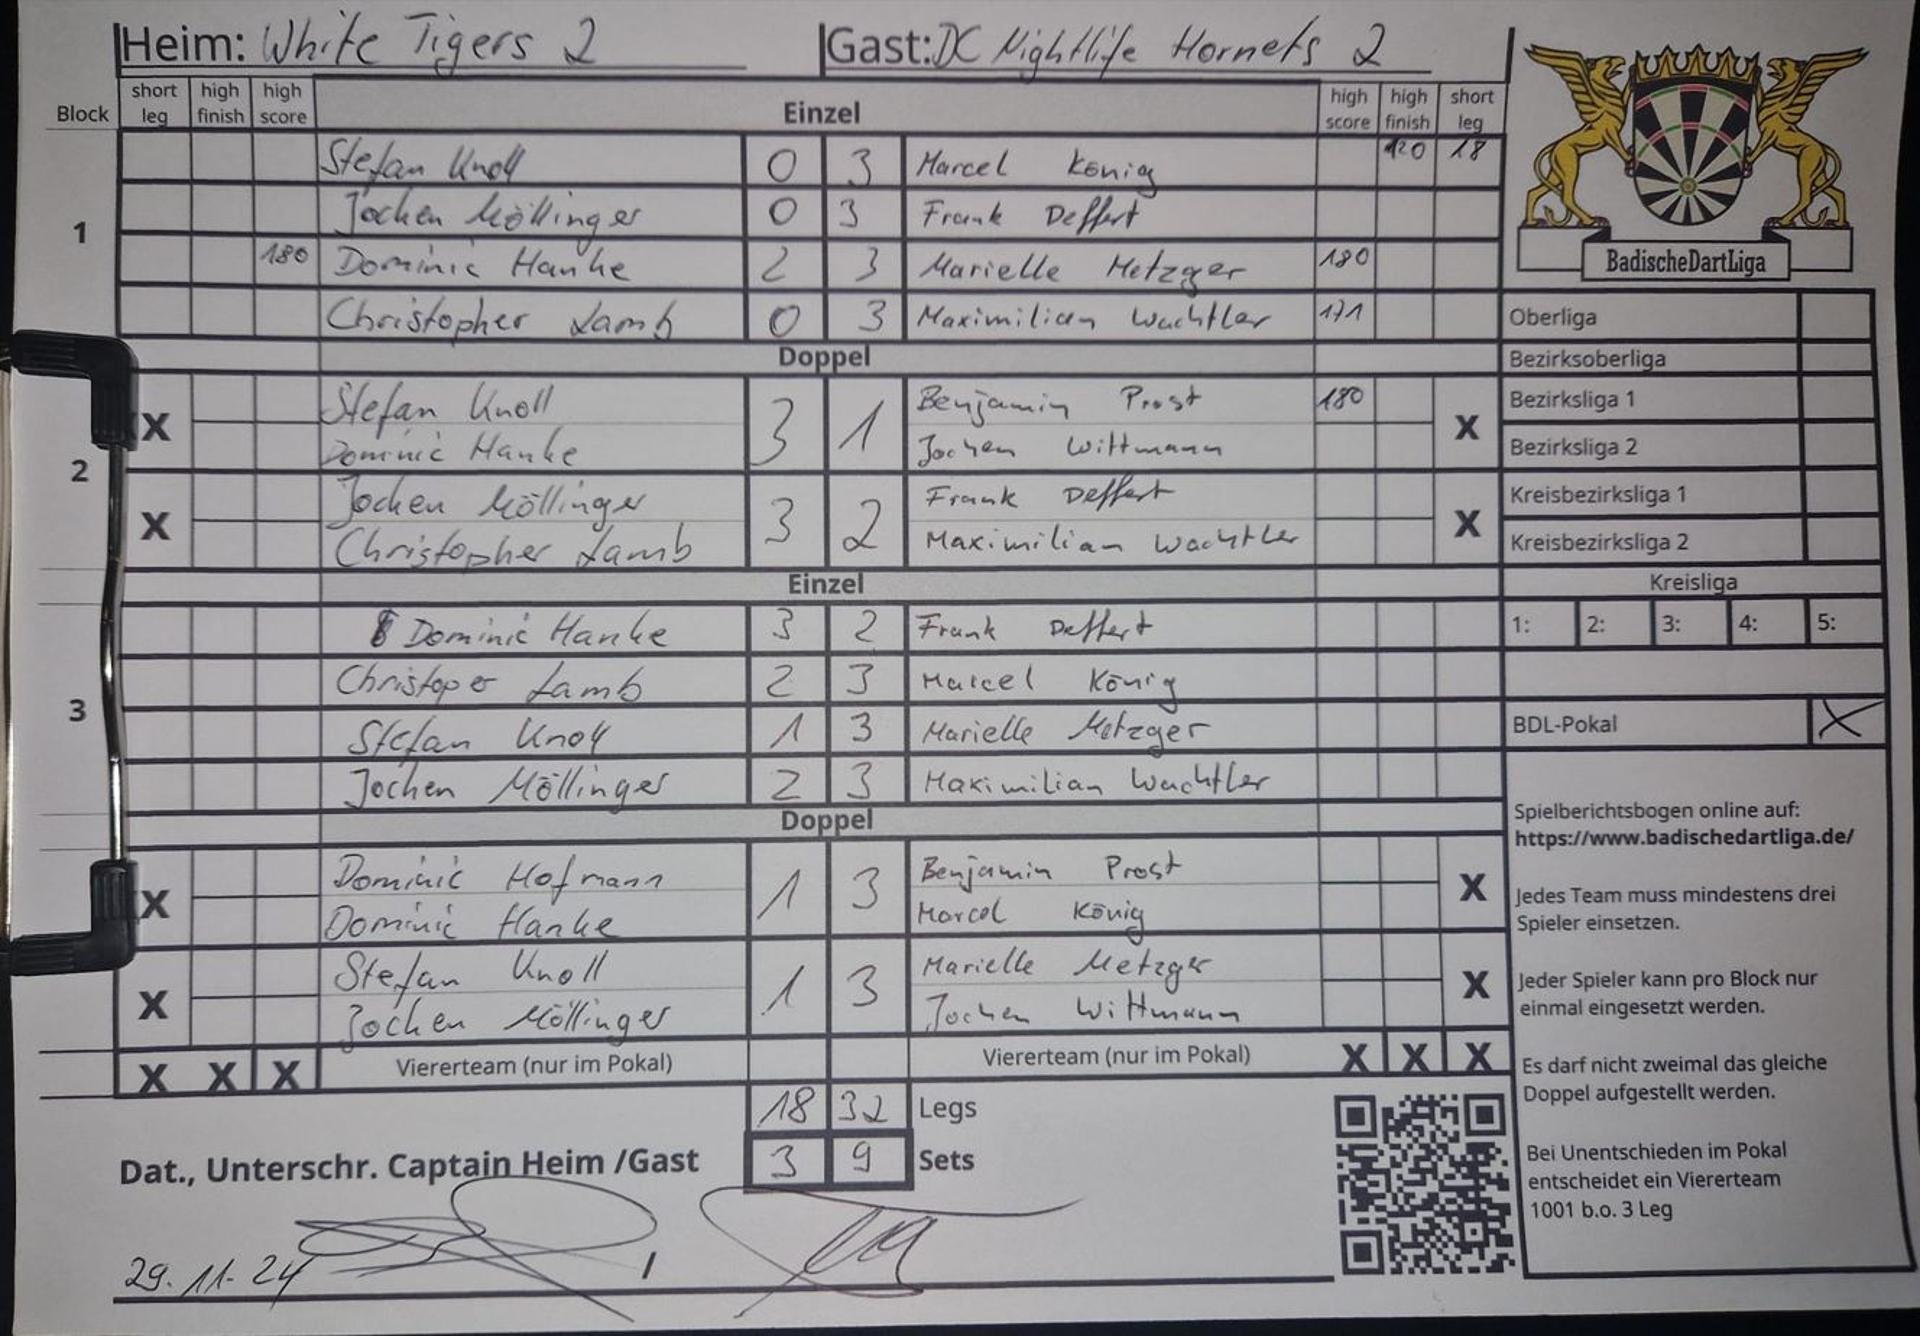 Heim: White Tigers 2 Gast: DC Nightlife Hornets 2
Block short leg high finish high score Einzel high score high finish short leg
1
Stefan Knoll 0 3 Marcel König 120 18
Jochen Möllinger 0 3 Frank Deffert
180 Dominic Hanke 2 3 Marielle Metzger 180
Christopher Lamb 0 3 Maximilian Wachtler 171
Doppel
2
X Stefan Knoll 3 1 Benjamin Prost 180 X
Dominic Hanke Jochen Wittmann
X Jochen Möllinger 3 2 Frank Deffert X
Christopher Lamb Maximilian Wachtler
Einzel
3
Dominic Hanke 3 2 Frank Deffert
Christoper Lamb 2 3 Marcel König
Stefan Knoll 1 3 Marielle Metzger
Jochen Möllinger 2 3 Maximilian Wachtler
Doppel
X Dominic Hofmann 1 3 Benjamin Prost X
Dominic Hanke Marcel König
X Stefan Knoll 1 3 Marielle Metzger X
Jochen Möllinger Jochen Wittmann
X X X Viererteam (nur im Pokal) Viererteam (nur im Pokal) X X X
18 32 Legs
Dat., Unterschr. Captain Heim /Gast 3 9 Sets
29.11.24 /
BadischeDartLiga
Oberliga
Bezirksoberliga
Bezirksliga 1
Bezirksliga 2
Kreisbezirksliga 1
Kreisbezirksliga 2
Kreisliga
1: 2: 3: 4: 5:
BDL-Pokal X
Spielberichtsbogen online auf:
https://www.badischedartliga.de/
Jedes Team muss mindestens drei
Spieler einsetzen.
Jeder Spieler kann pro Block nur
einmal eingesetzt werden.
Es darf nicht zweimal das gleiche
Doppel aufgestellt werden.
Bei Unentschieden im Pokal
entscheidet ein Viererteam
1001 b.o. 3 Leg